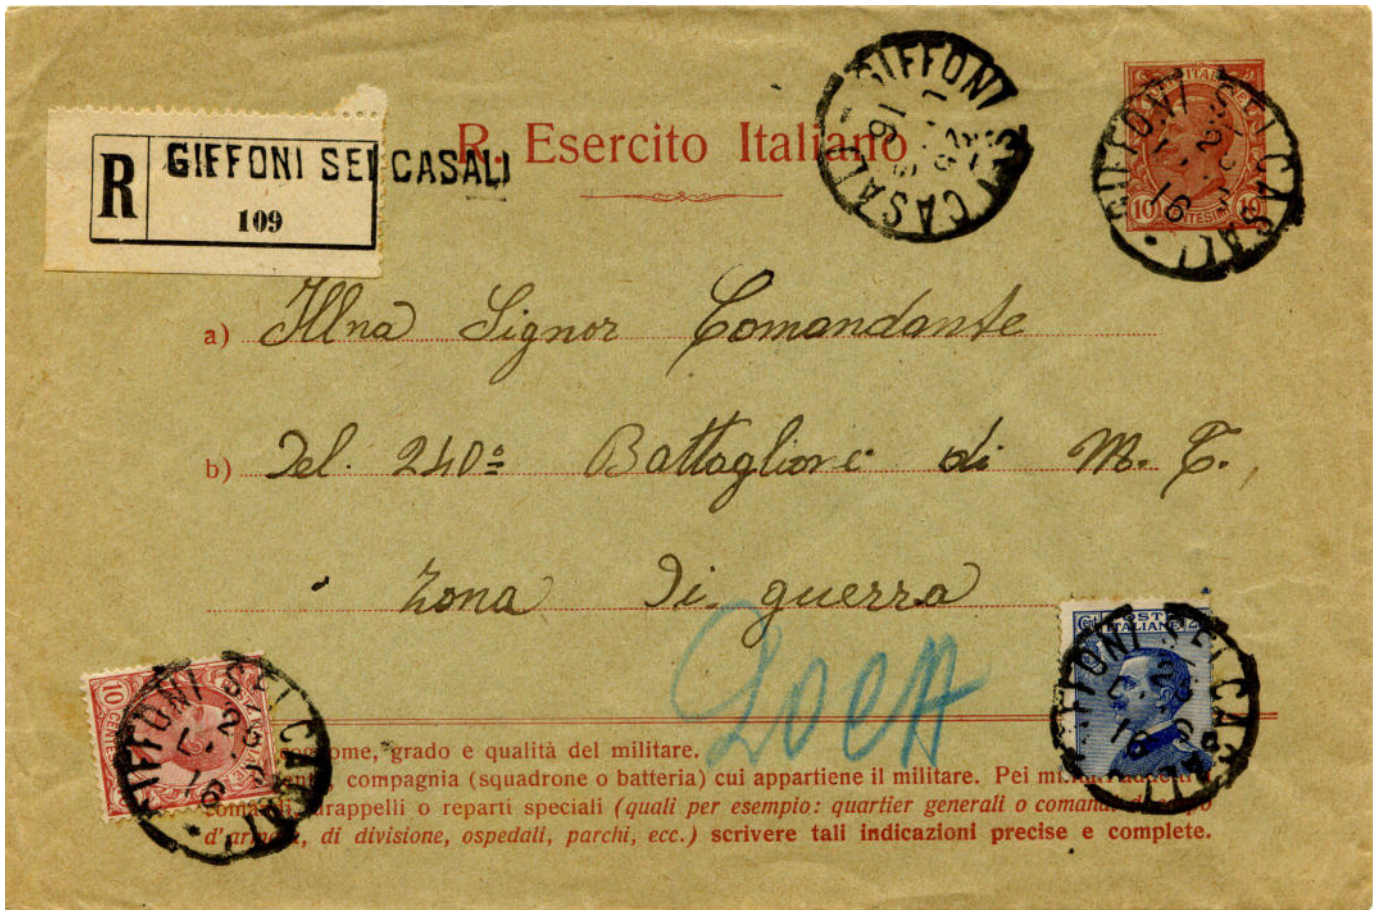 R. Esercito Italiano
R GIFFONI SEI CASALI
109
GIFFONI SEI CASALI
16
GIFFONI SEI CASALI
16
10 10
a) Illma Signor Comandante
b) Del. 240º Battaglione di M. T.,
Zona Di guerra
POSTE
ITALIANE
GIFFONI SEI CASALI
16
10
GIFFONI SEI CASALI
16
nome, grado e qualità del militare.
compagnia (squadrone o batteria) cui appartiene il militare. Pei
drappelli o reparti speciali (quali per esempio: quartier generali o comandi di
d'armata, di divisione, ospedali, parchi, ecc.) scrivere tali indicazioni precise e complete.